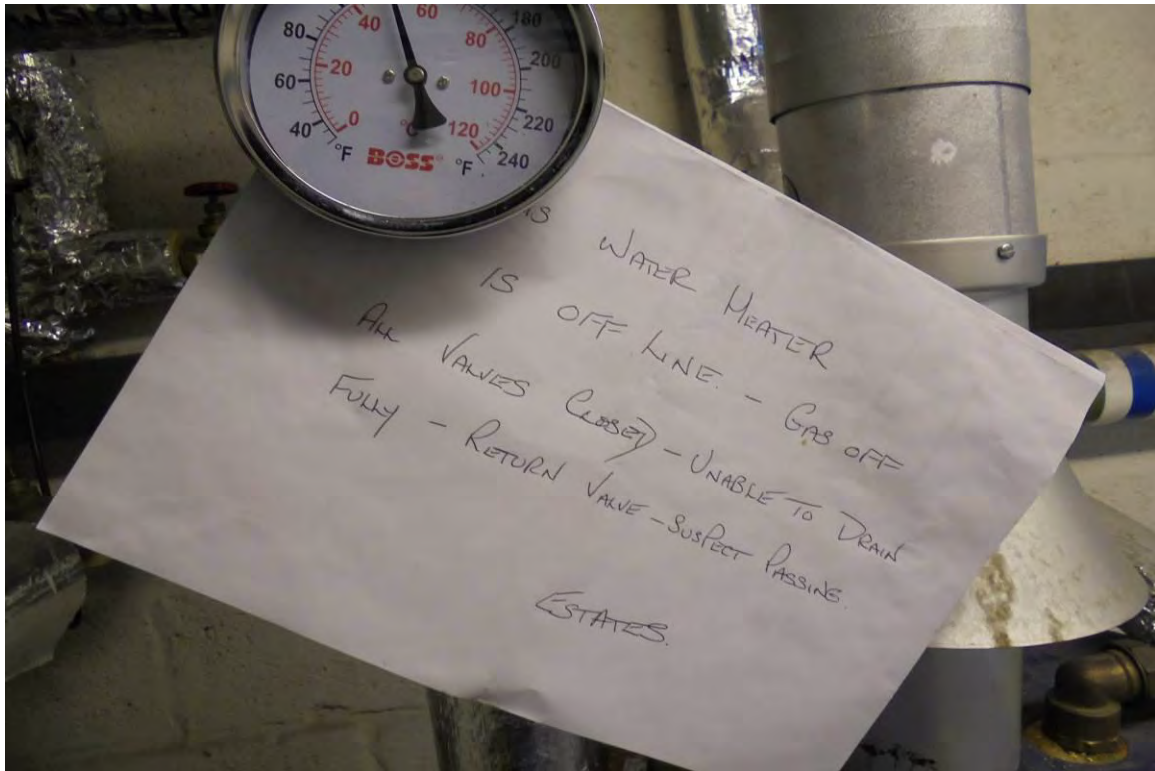 60
40
80
180
80
200
20
60
100
220
0
°C
120
40
°F
BOSS
°F
240
WATER HEATER
IS OFF LINE. - GAS OFF
ALL VALVES CLOSED - UNABLE TO DRAIN
FULLY - RETURN VALVE - SUSPECT PASSING.
ESTATES.